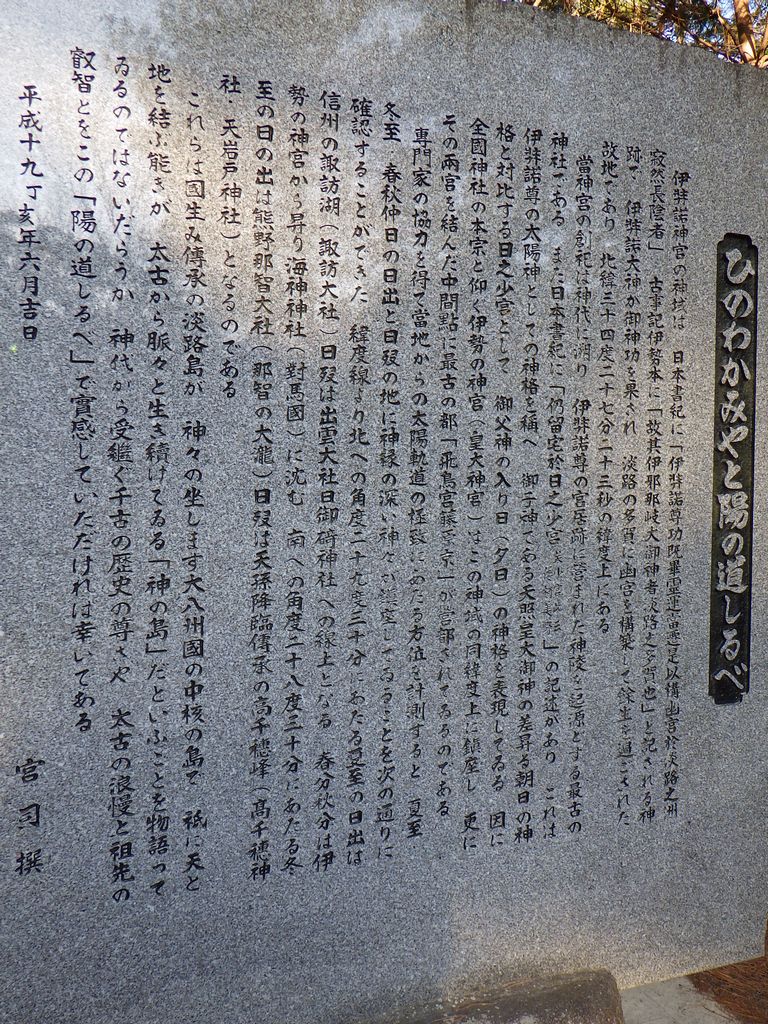 ひのわかみやと陽の道しるべ
伊弉諾神宮の神域は 日本書紀に「伊弉諾尊功既畢靈運當遷是以構幽宮於淡路之州
寂然長隠者」 古事記伊勢本に「故其伊耶那岐大御神者淡路之多賀也」と記される神
跡で 伊弉諾大神が御神功を果され 淡路の多賀に幽宮を構築して餘生を過ごされた
故地であり 北緯三十四度二十七分二十三秒の緯度上にある
當神宮の創祀は神代に溯り 伊弉諾尊の宮居跡に営まれた神陵を起源とする最古の
神社である また日本書紀に「仍留宅於日之少宮 」の記述があり これは
伊弉諾尊の太陽神としての神格を稱へ 御子神である天照皇大御神の差昇る朝日の神
格と対比する日之少宮として 御父神の入り日（夕日）の神格を表現してゐる 因に
全國神社の本宗と仰ぐ伊勢の神宮（皇大神宮）はこの神域の同緯度上に鎮座し 更に
その兩宮を結んだ中間點に最古の都「飛鳥宮藤原京」が営都されてゐるのである
専門家の協力を得て當地からの太陽軌道の極致にあたる方位を計測すると 夏至
冬至 春秋仲日の日出と日歿の地に神縁の深い神々が鎮座してゐることを次の通りに
確認することができた 緯度線より北への角度二十九度三十分にあたる夏至の日出は
信州の諏訪湖（諏訪大社）日歿は出雲大社日御碕神社 への線上となる 春分秋分は伊
勢の神宮から昇り海神神社（對馬國）に沈む 南への角度二十八度三十分にあたる冬
至の日の出は熊野那智大社（那智の大瀧）日歿は天孫降臨傳承の高千穂峰（高千穂神
社・天岩戸神社）となるのである
これらは國生み傳承の淡路島が 神々の坐します大八州國の中核の島で 祗に天と
地を結ぶ能きが 太古から脈々と生き續けてゐる「神の島」だといふことを物語って
ゐるのではないだらうか 神代から受繼ぐ千古の歴史の尊さや 太古の浪慢と祖先の
叡智とをこの「陽の道しるべ」で實感していただければ幸いである
平成十九丁亥年六月吉日
宮司 撰